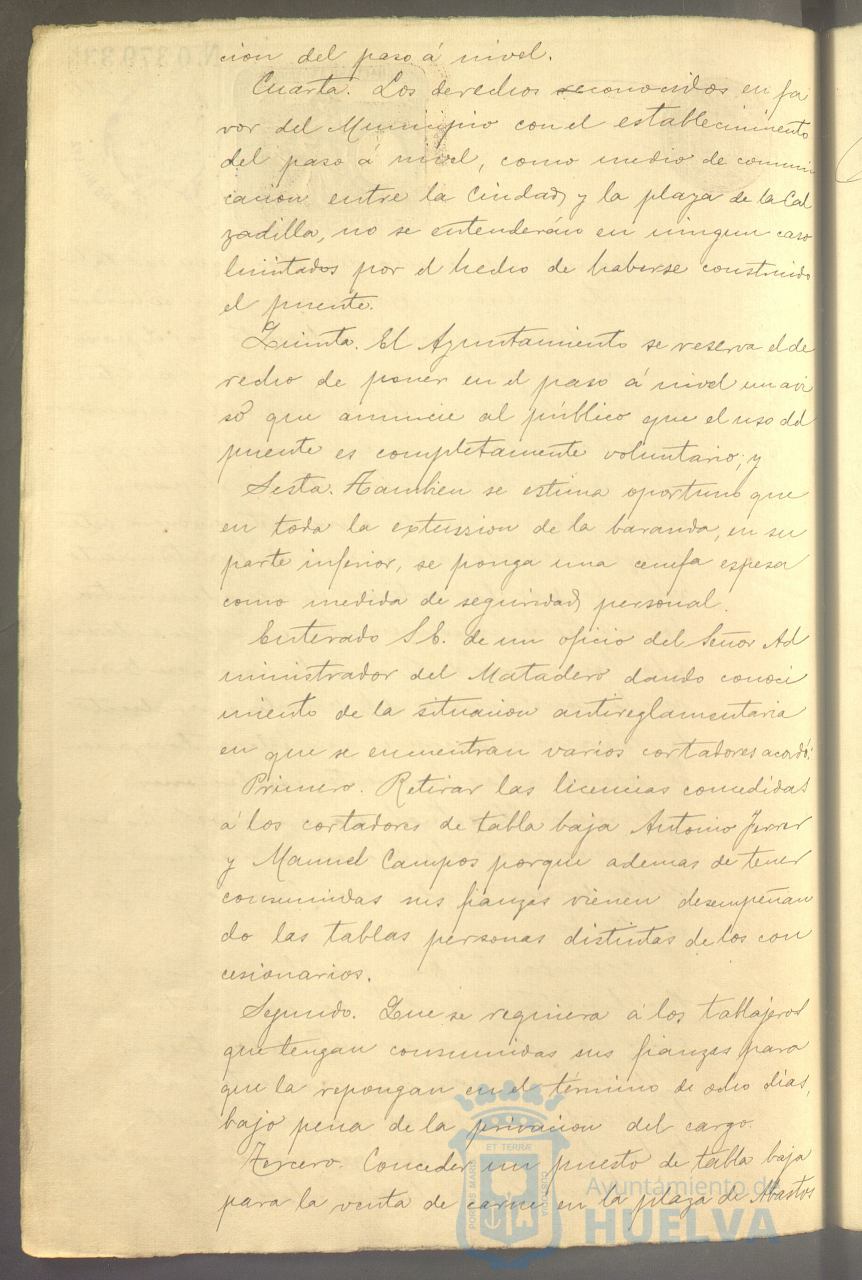 cion del paso á nivel.
Cuarta. Los derechos reconocidos en fa
vor del Municipio con el establecimiento
del paso á nivel, como medio de comuni
cacion entre la Ciudad y la plaza de la Cal
zadilla, no se entenderán en ningun caso
limitados por el hecho de haberse construido
el puente.
Quinta. El Ayuntamiento se reserva el de
recho de poner en el paso á nivel un avi
so que anuncie al público que el uso del
puente es completamente voluntario; y
Sesta. Tambien se estima oportuno que
en toda la extension de la baranda, en su
parte inferior, se ponga una cenefa espesa
como medida de seguridad personal.
Enterado S.E. de un oficio del Señor Ad
ministrador del Matadero dando conoci
miento de la situacion antireglamentaria
en que se encuentran varios cortadores acordó:
Primero. Retirar las licencias concedidas
á los cortadores de tabla baja Antonio Ferrer
y Manuel Campos porque ademas de tener
consumidas sus fianzas vienen desempeñan
do las tablas personas distintas de los con
cesionarios.
Segundo. Que se requiera á los tablajeros
que tengan consumidas sus fianzas para
que la repongan en el término de ocho dias,
bajo pena de la privacion del cargo.
Tercero. Conceder un puesto de tabla baja
para la venta de carne en la plaza de Abastos
ET TERRÆ
PORTUS MARIS
CUSTODIA
Ayuntamiento de
HUELVA